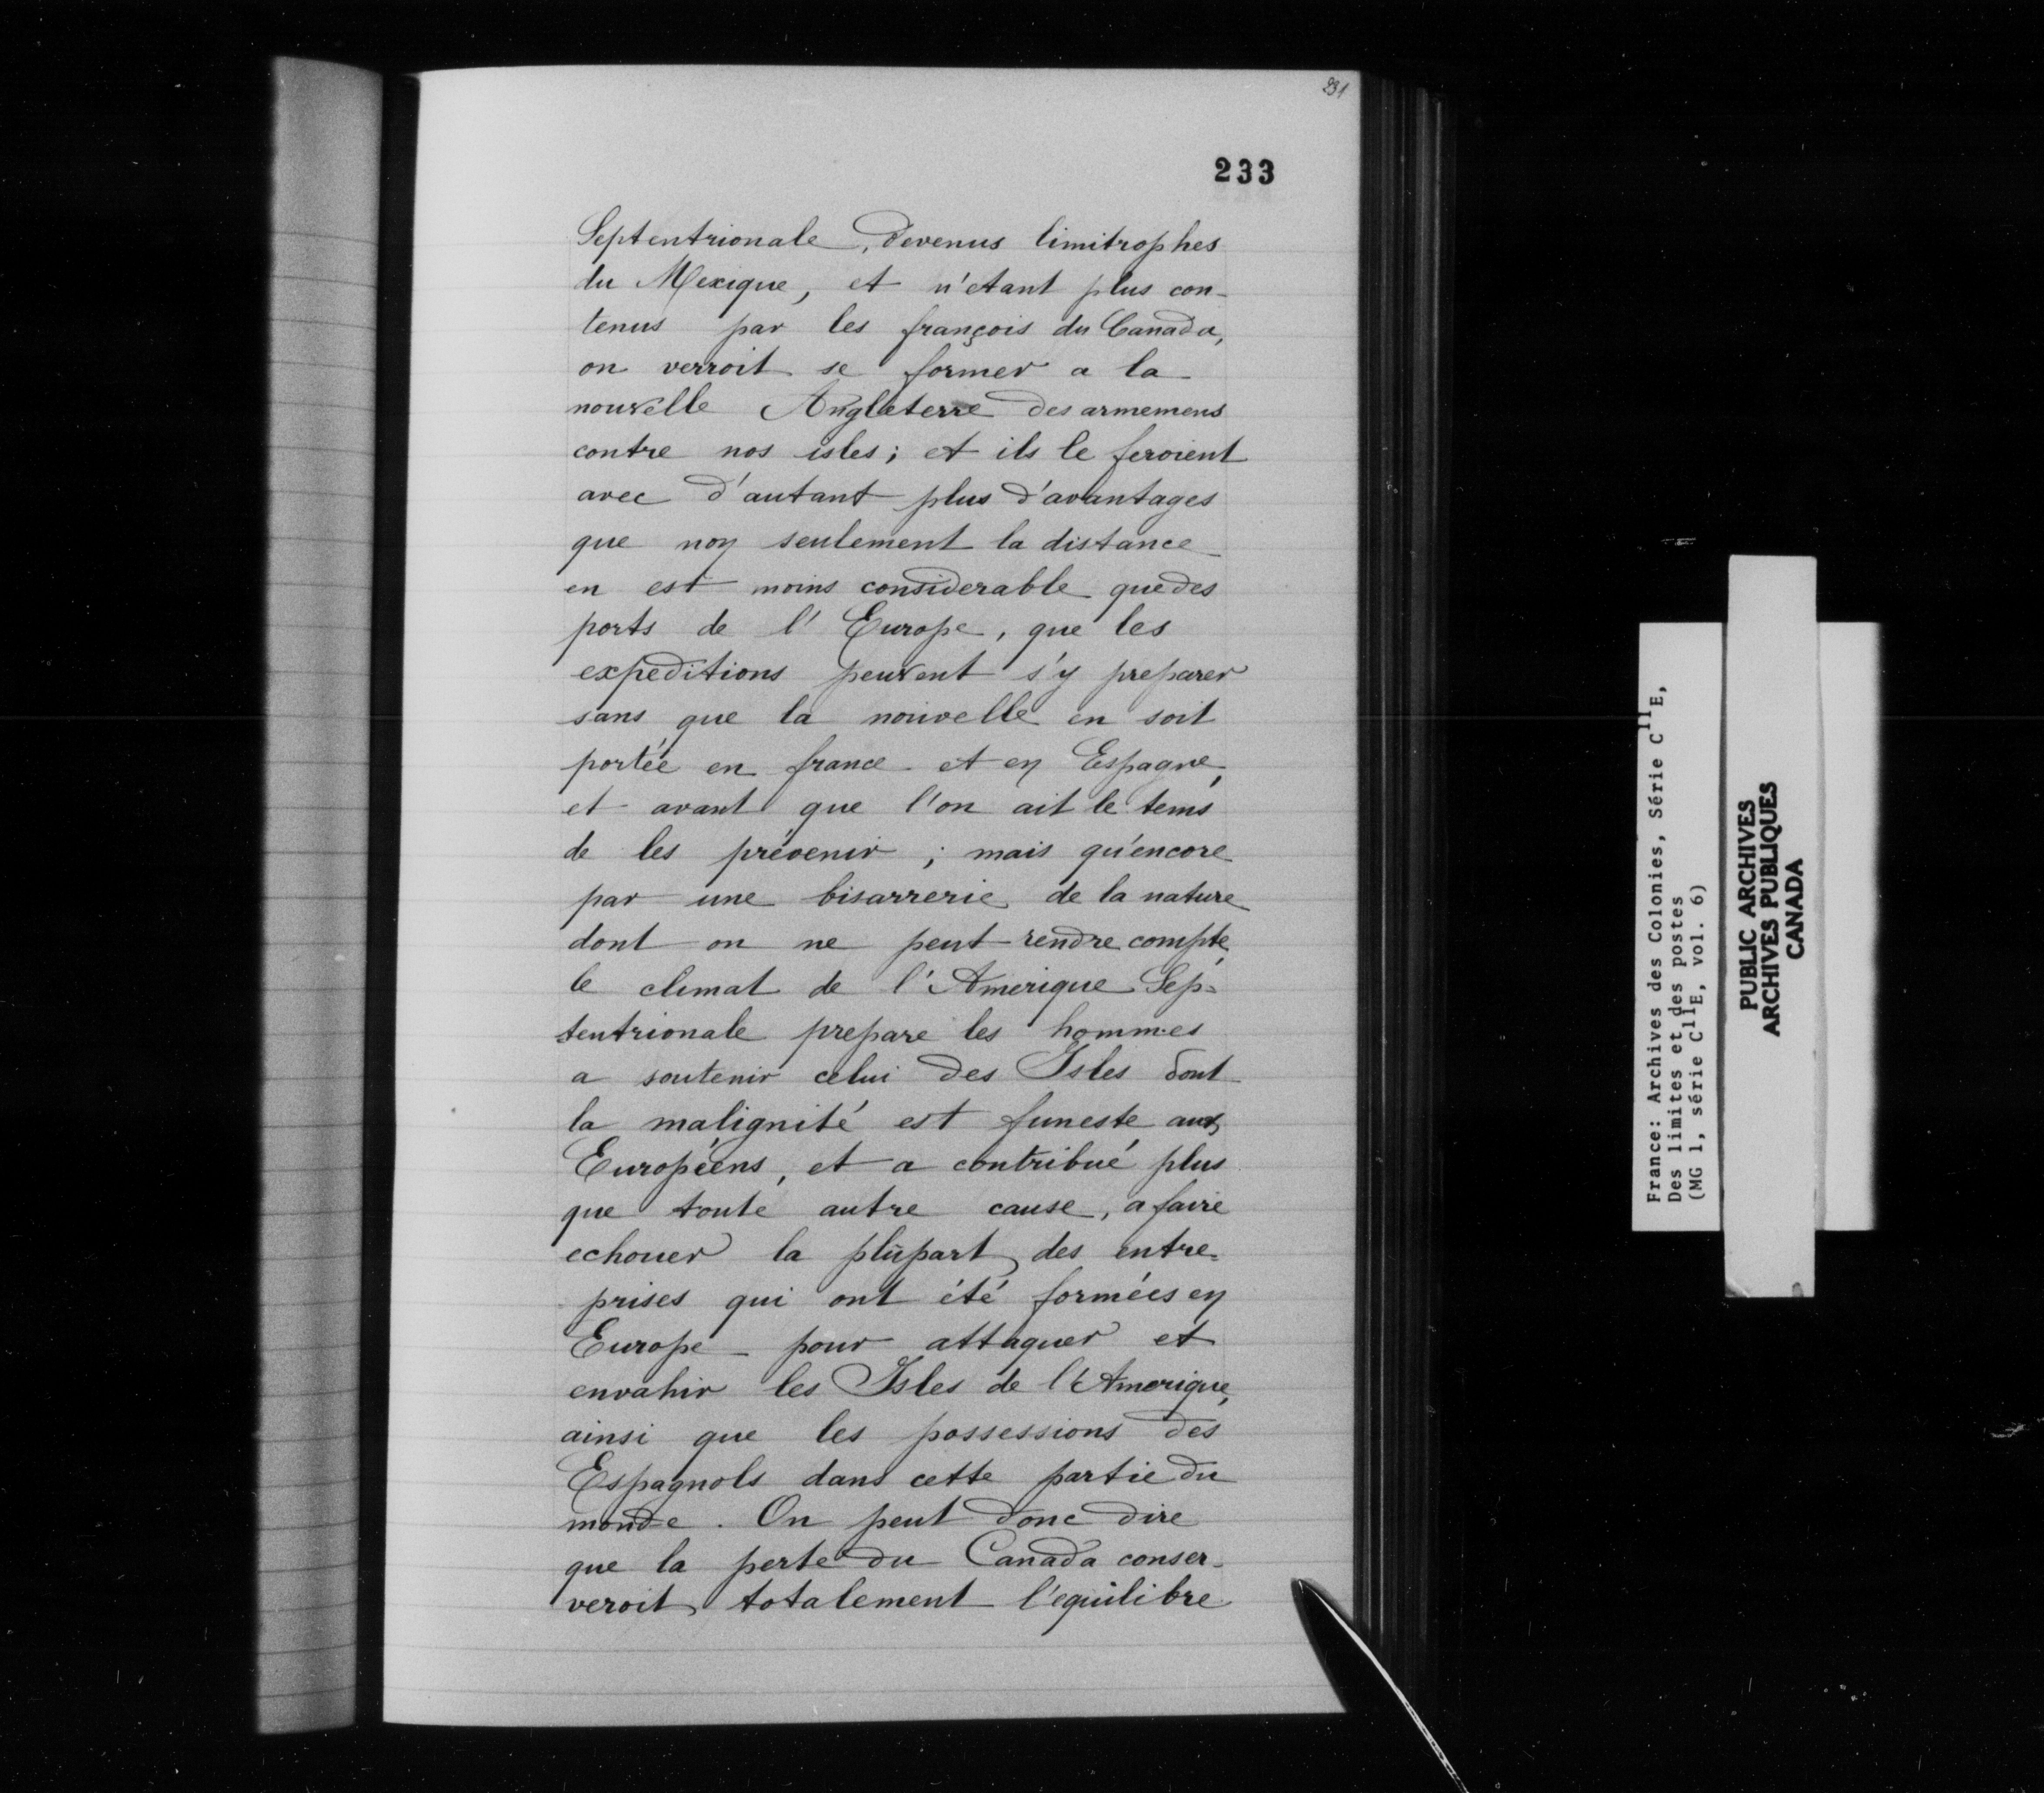 231
233
Septentrionale, devenus limitrophes
du Mexique, et n'etant plus con-
tenus par les françois du Canada,
on verroit se former a la
nouvelle Angleterre des armemens
contre nos isles; et ils le feroient
avec d'autant plus d'avantages
que non seulement la distance
en est moins considerable que des
ports de l'Europe, que les
expeditions peuvent s'y preparer
sans que la nouvelle en soit
portée en france et en Espagne,
et avant que l'on ait le tems
de les prévenir; mais qu'encore
par une bisarrerie de la nature
dont on ne peut rendre compte,
le climat de l'Amerique Sep-
tentrionale prepare les hommes
a soutenir celui des Isles dont
la malignité est funeste aux
Européens, et a contribué plus
que toute autre cause, a faire
echouer la plûpart des entre-
prises qui ont été formées en
Europe pour attaquer et
envahir les Isles de l'Amerique,
ainsi que les possessions des
Espagnols dans cette partie du
monde. On peut donc dire
que la perte du Canada conser-
veroit totalement l'equilibre
France: Archives des Colonies, Série C11E,
Des limites et des postes
(MG 1, série C11E, vol. 6)
PUBLIC ARCHIVES
ARCHIVES PUBLIQUES
CANADA